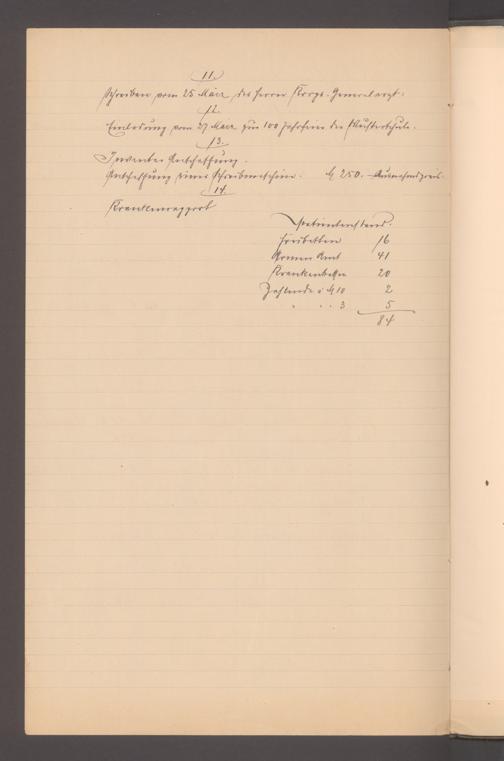 11.
Schreiben vom 25 März des Herrn Korps-Generalarzt.
12.
Einladung vom 27 März zur 100 Jahrfeier der Musterschule.
13.
Inventar Anschaffung.
Anschaffung einer Schreibmaschine. M 250. Ausnahmepreis.
14.
Krankenrapport
Patientenstand.
Freibetten 16
Armen Amt 41
Krankenkassen 20
Zahlende à M 10 2
" " " 3 5
84